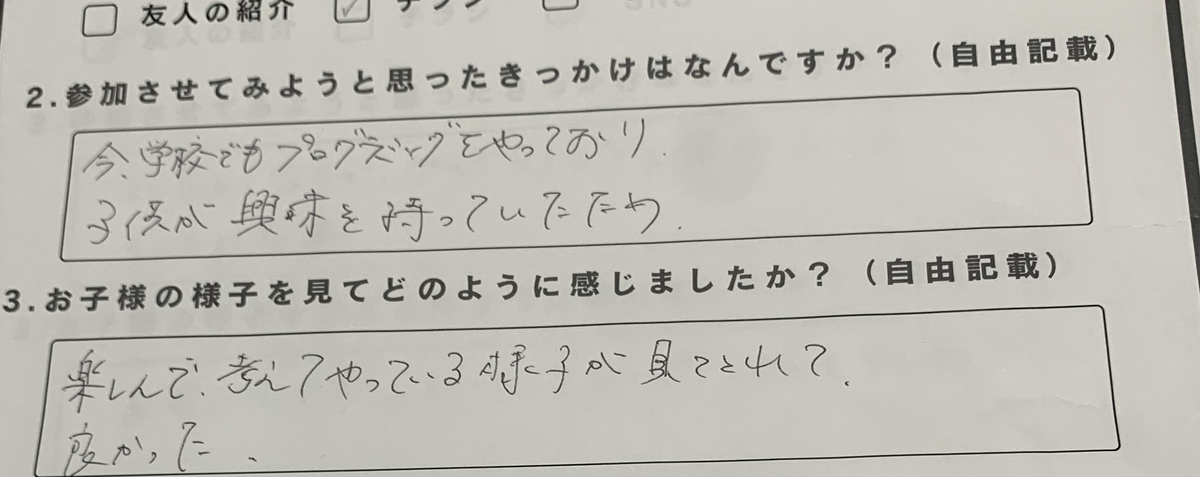 友人の紹介 チラシ
2.参加させてみようと思ったきっかけはなんですか？（自由記載）
今、学校でもプログラミングをやっており、
子供が興味を持っていたため、
3.お子様の様子を見てどのように感じましたか？（自由記載）
楽しんで、考えてやっている様子が見てとれて、
良かった、